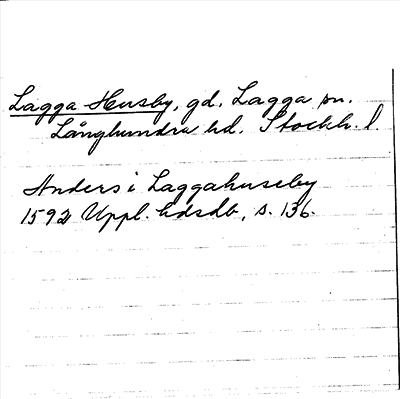 Lagga-Husby, gd. Lagga sn.
Långhundra hd. Stockh. l.
Anders i Laggahuseby
1592 Uppl. hdsdb, s. 136.